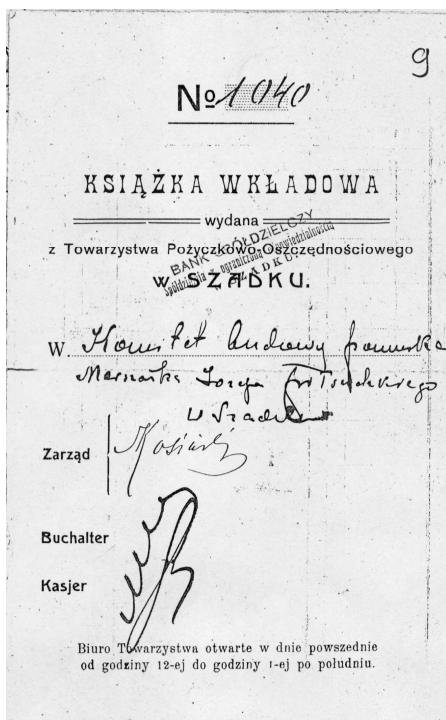 9
№ 1040
KSIĄŻKA WKŁADOWA
wydana
z Towarzystwa Pożyczkowo-Oszczędnościowego
BANK SPÓŁDZIELCZY
Spółdzielnia z ograniczoną odpowiedzialnością
W SZADKU
w SZADKU.
W. Komitet budowy pomnika
Marszałka Józefa Piłsudskiego
w Szadku
Zarząd
Buchalter
Kasjer
Biuro Towarzystwa otwarte w dnie powszednie
od godziny 12-ej do godziny 1-ej po południu.